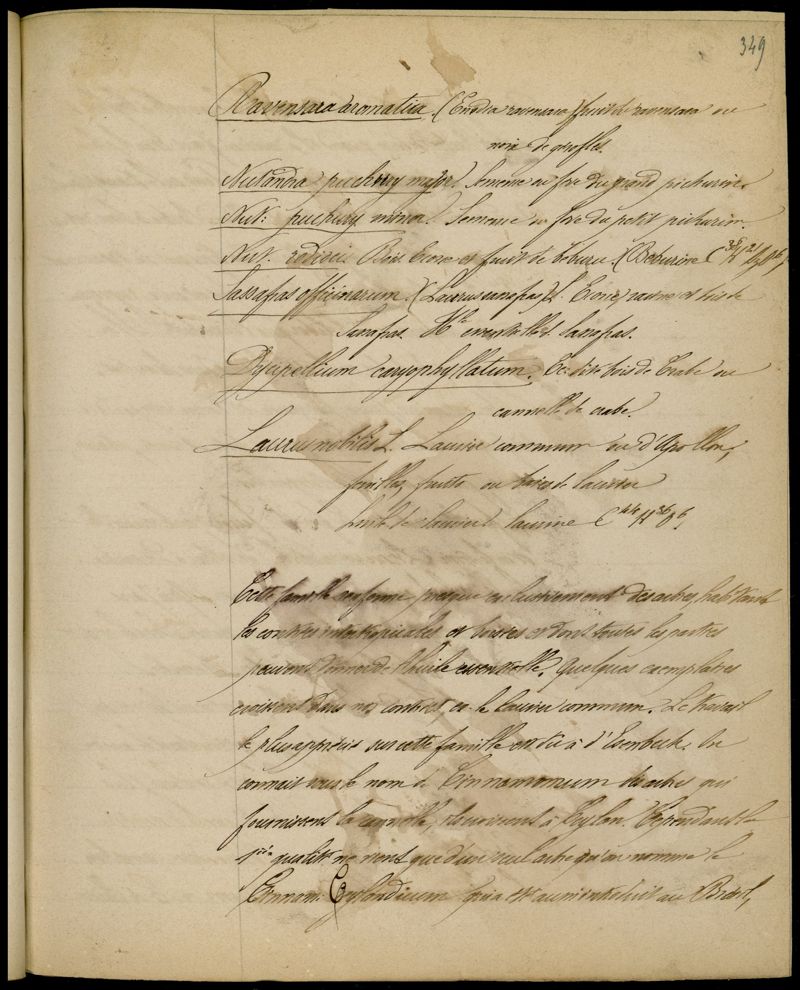 349
Ravensara aromatica. (Evodia ravensara) fruit de ravensara ou
noix de girofles.
Nectandra puchury major. Semence ou fève du grand pichurim.
Nect: puchury minor. Semence ou fève du petit pichurim.
Nect. rodiei. Bois Ecorce et fruit de bebeeru. (Beburine C 38 H 21
Sassafras officinarum. (Laurus sassafras L. Ecorce, racine et bois de
Sassafras. Hle essentielle d. Sassafras.
Dycipellium caryophyllatum. Ec. dite bois de Crabe ou
cannelle de crabe.
Laurus nobilis L. Laurier commun ou d'Apollon,
feuilles, fruits ou baies de laurier
huile de laurier laurine C 44 H 36 O 6.
Cette famille renferme presque exclusivement des arbres, habitant
les contrées intertropicales et boisées et dont toutes les parties
peuvent donner de l'huile essentielle. Quelques exemplaires
croissent dans nos contrées ex. le laurier commun. Le travail
le plus apprécié sur cette famille est dû à d'Esenbeck. On
connait sous le nom de Cinnamomum des arbres qui
fournissent la cannelle, et croissent à Ceylan. Cependant la
1ière qualité ne vient que d'un seul arbre qu'on nomme le
Cinnam. Ceylandicum qui a été aussi introduit au Brésil,